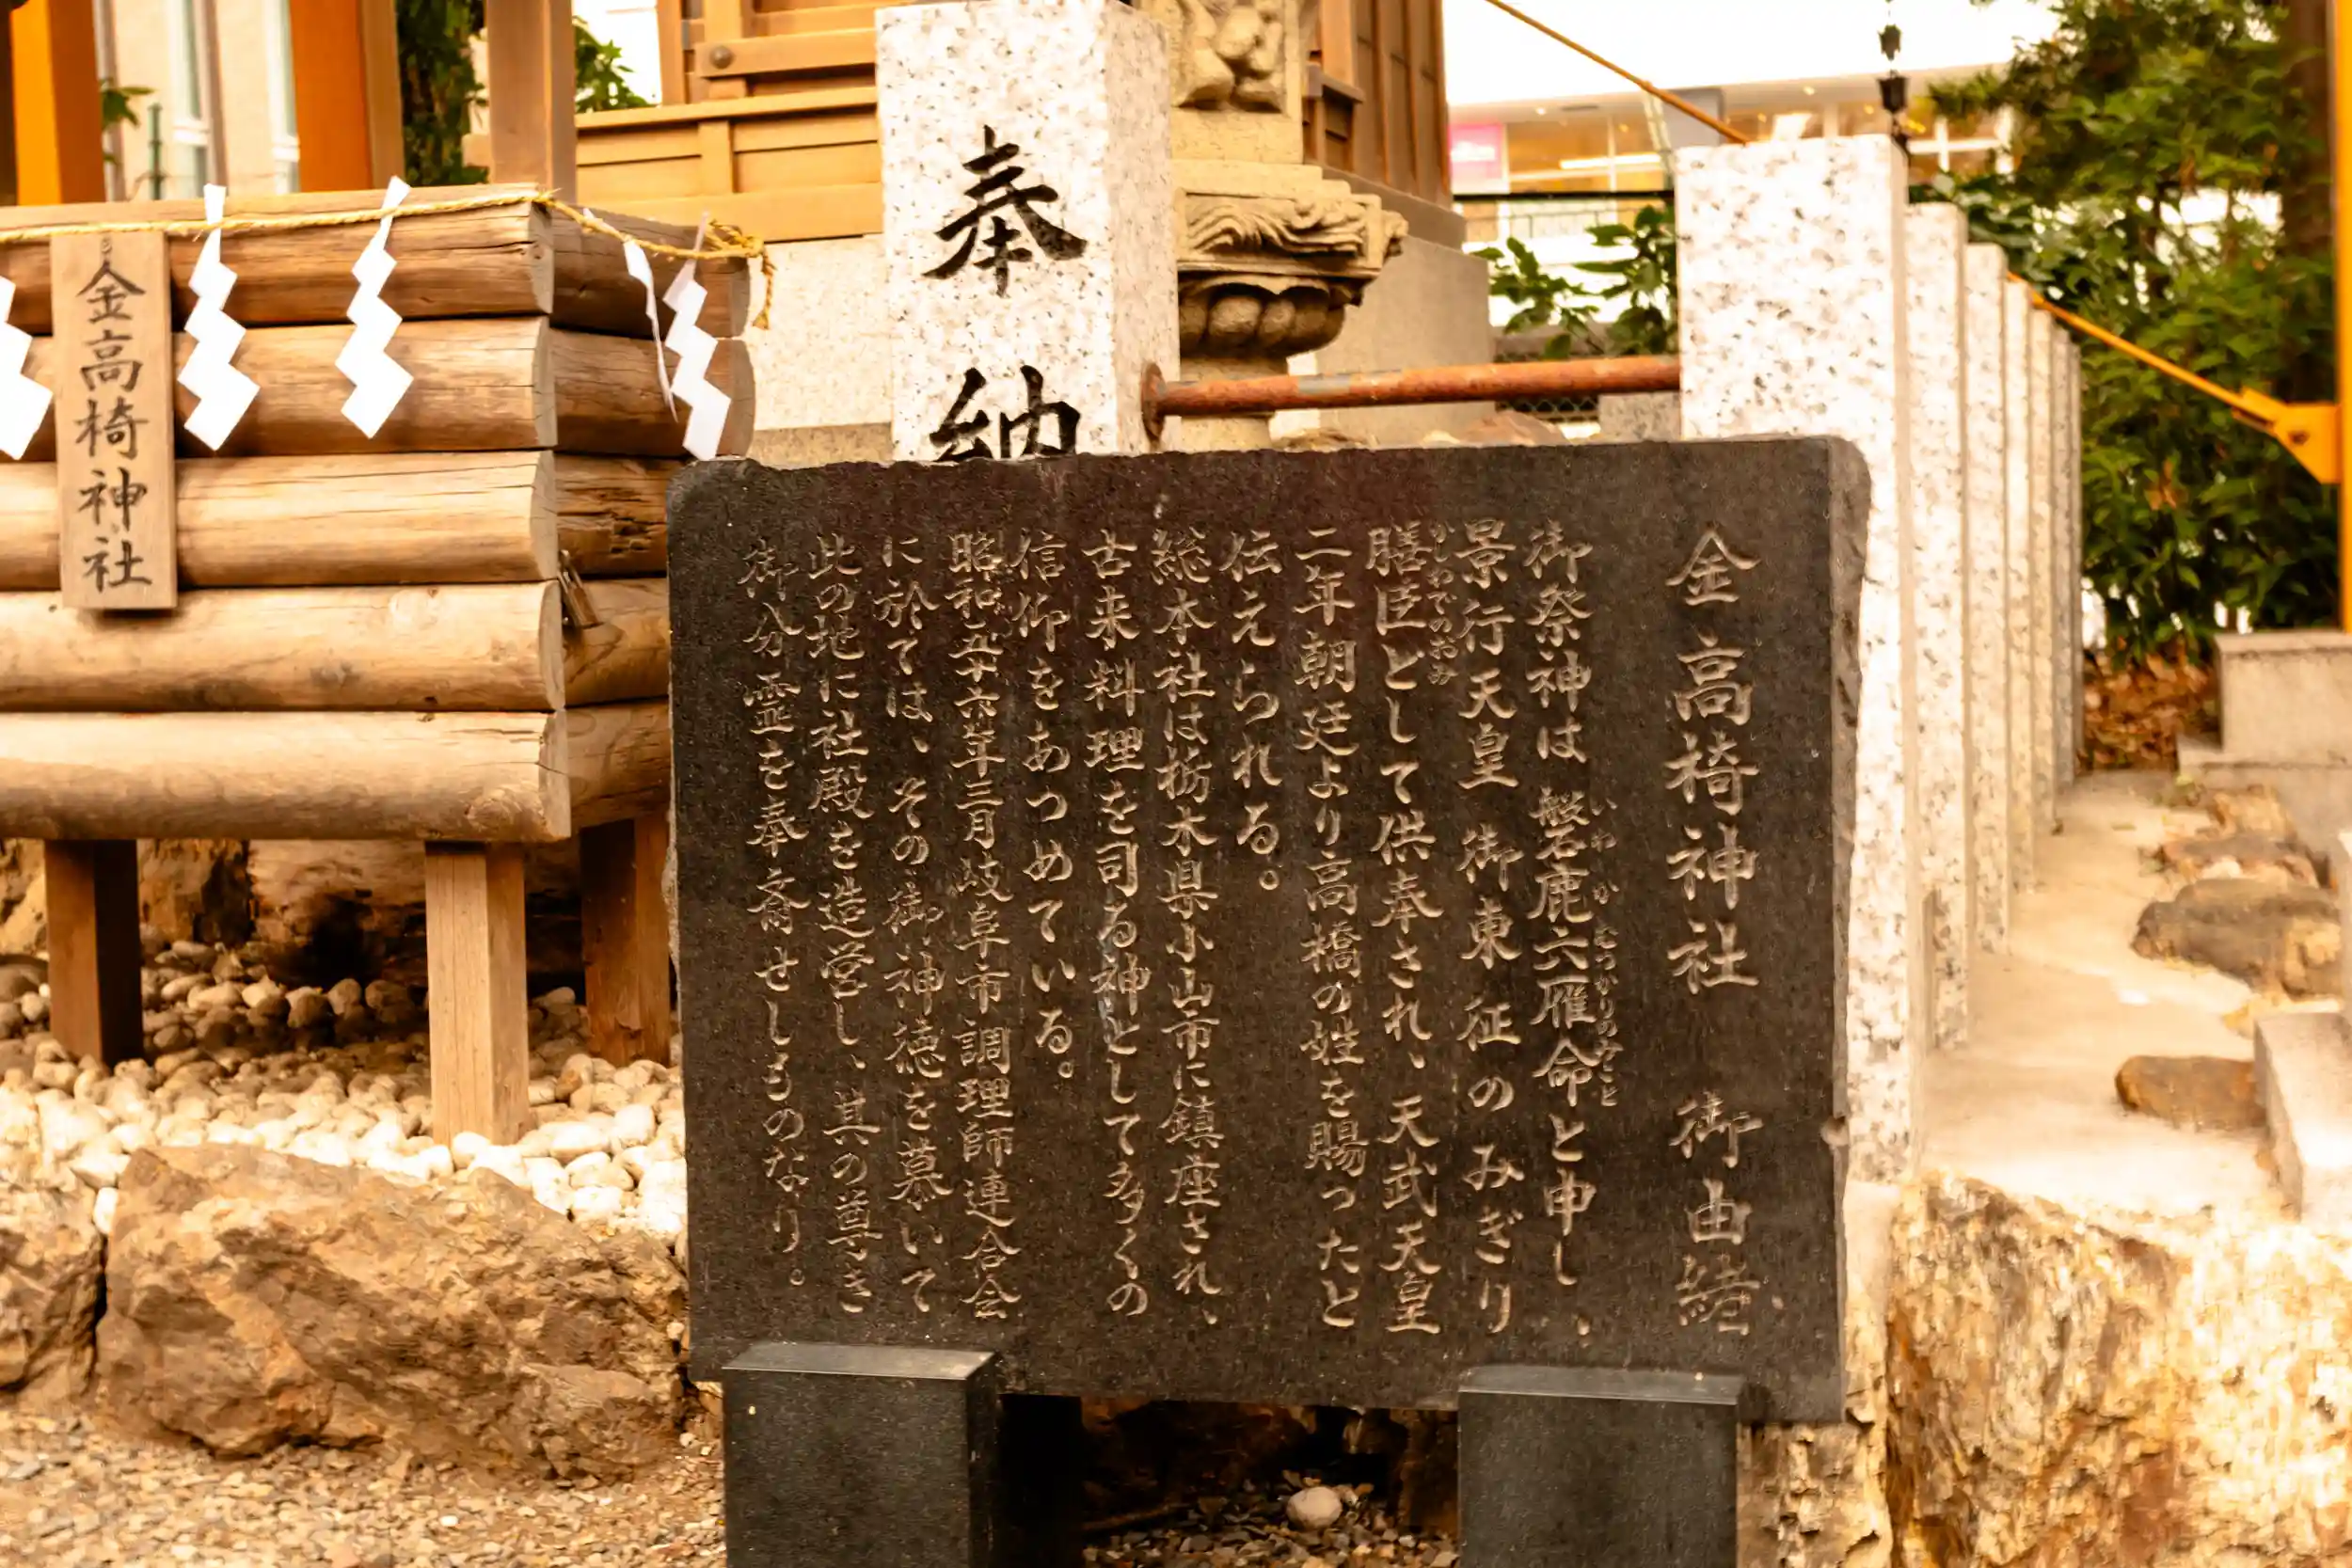 金高椅神社　御由緒
御祭神は　磐鹿六雁命と申し、
いわかむつかりのみこと
景行天皇　御東征のみぎり
膳臣として供奉され、天武天皇
かしわでのおみ
二年朝廷より高橋の姓を賜ったと
伝えられる。
総本社は栃木県小山市に鎮座され、
古来料理を司る神として多くの
信仰をあつめている。
昭和五十六年三月岐阜市調理師連合会
に於ては、その御神徳を慕いて
此の地に社殿を造営し、其の尊き
御分霊を奉斎せしものなり。
奉納
金高椅神社